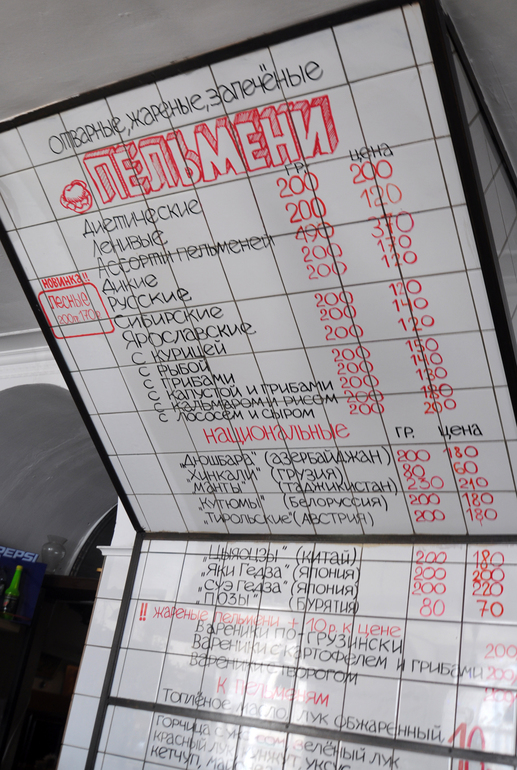 отварные, жареные, запечёные
ПЕЛЬМЕНИ
гр. цена
Диетические 200 200
Ленивые 200 120
Ассорти пельменей 490 370
Дикие 200 170
Русские 200 120
новинка!!
Лесные
200г. 170р
Сибирские 200 120
Ярославские 200 140
с курицей 200 120
с рыбой 200 150
с грибами 200 140
с капустой и грибами 200 130
с кальмаром и рисом 200 180
с лососем и сыром 200 200
национальные гр. цена
„Дюшбара" (азербайджан) 200 180
„Хинкали" (грузия) 80 60
„Манты" (таджикистан) 230 210
„Кутюмы" (белоруссия) 200 180
„Тирольские" (Австрия) 200 180
„Цьяоцзы" (китай) 200 180
„Яки гедза" (япония) 200 200
„Суэ гедза" (япония) 200 220
„Позы" (бурятия) 80 70
!! жареные пельмени + 10р. к цене
Вареники по-грузински
Вареники с картофелем и грибами 200
Вареники с творогом 200
к пельменям
Топлёное масло, лук обжаренный, 10
горчица соус зелёный лук
красный лук, уксус
кетчуп,
PEPSI